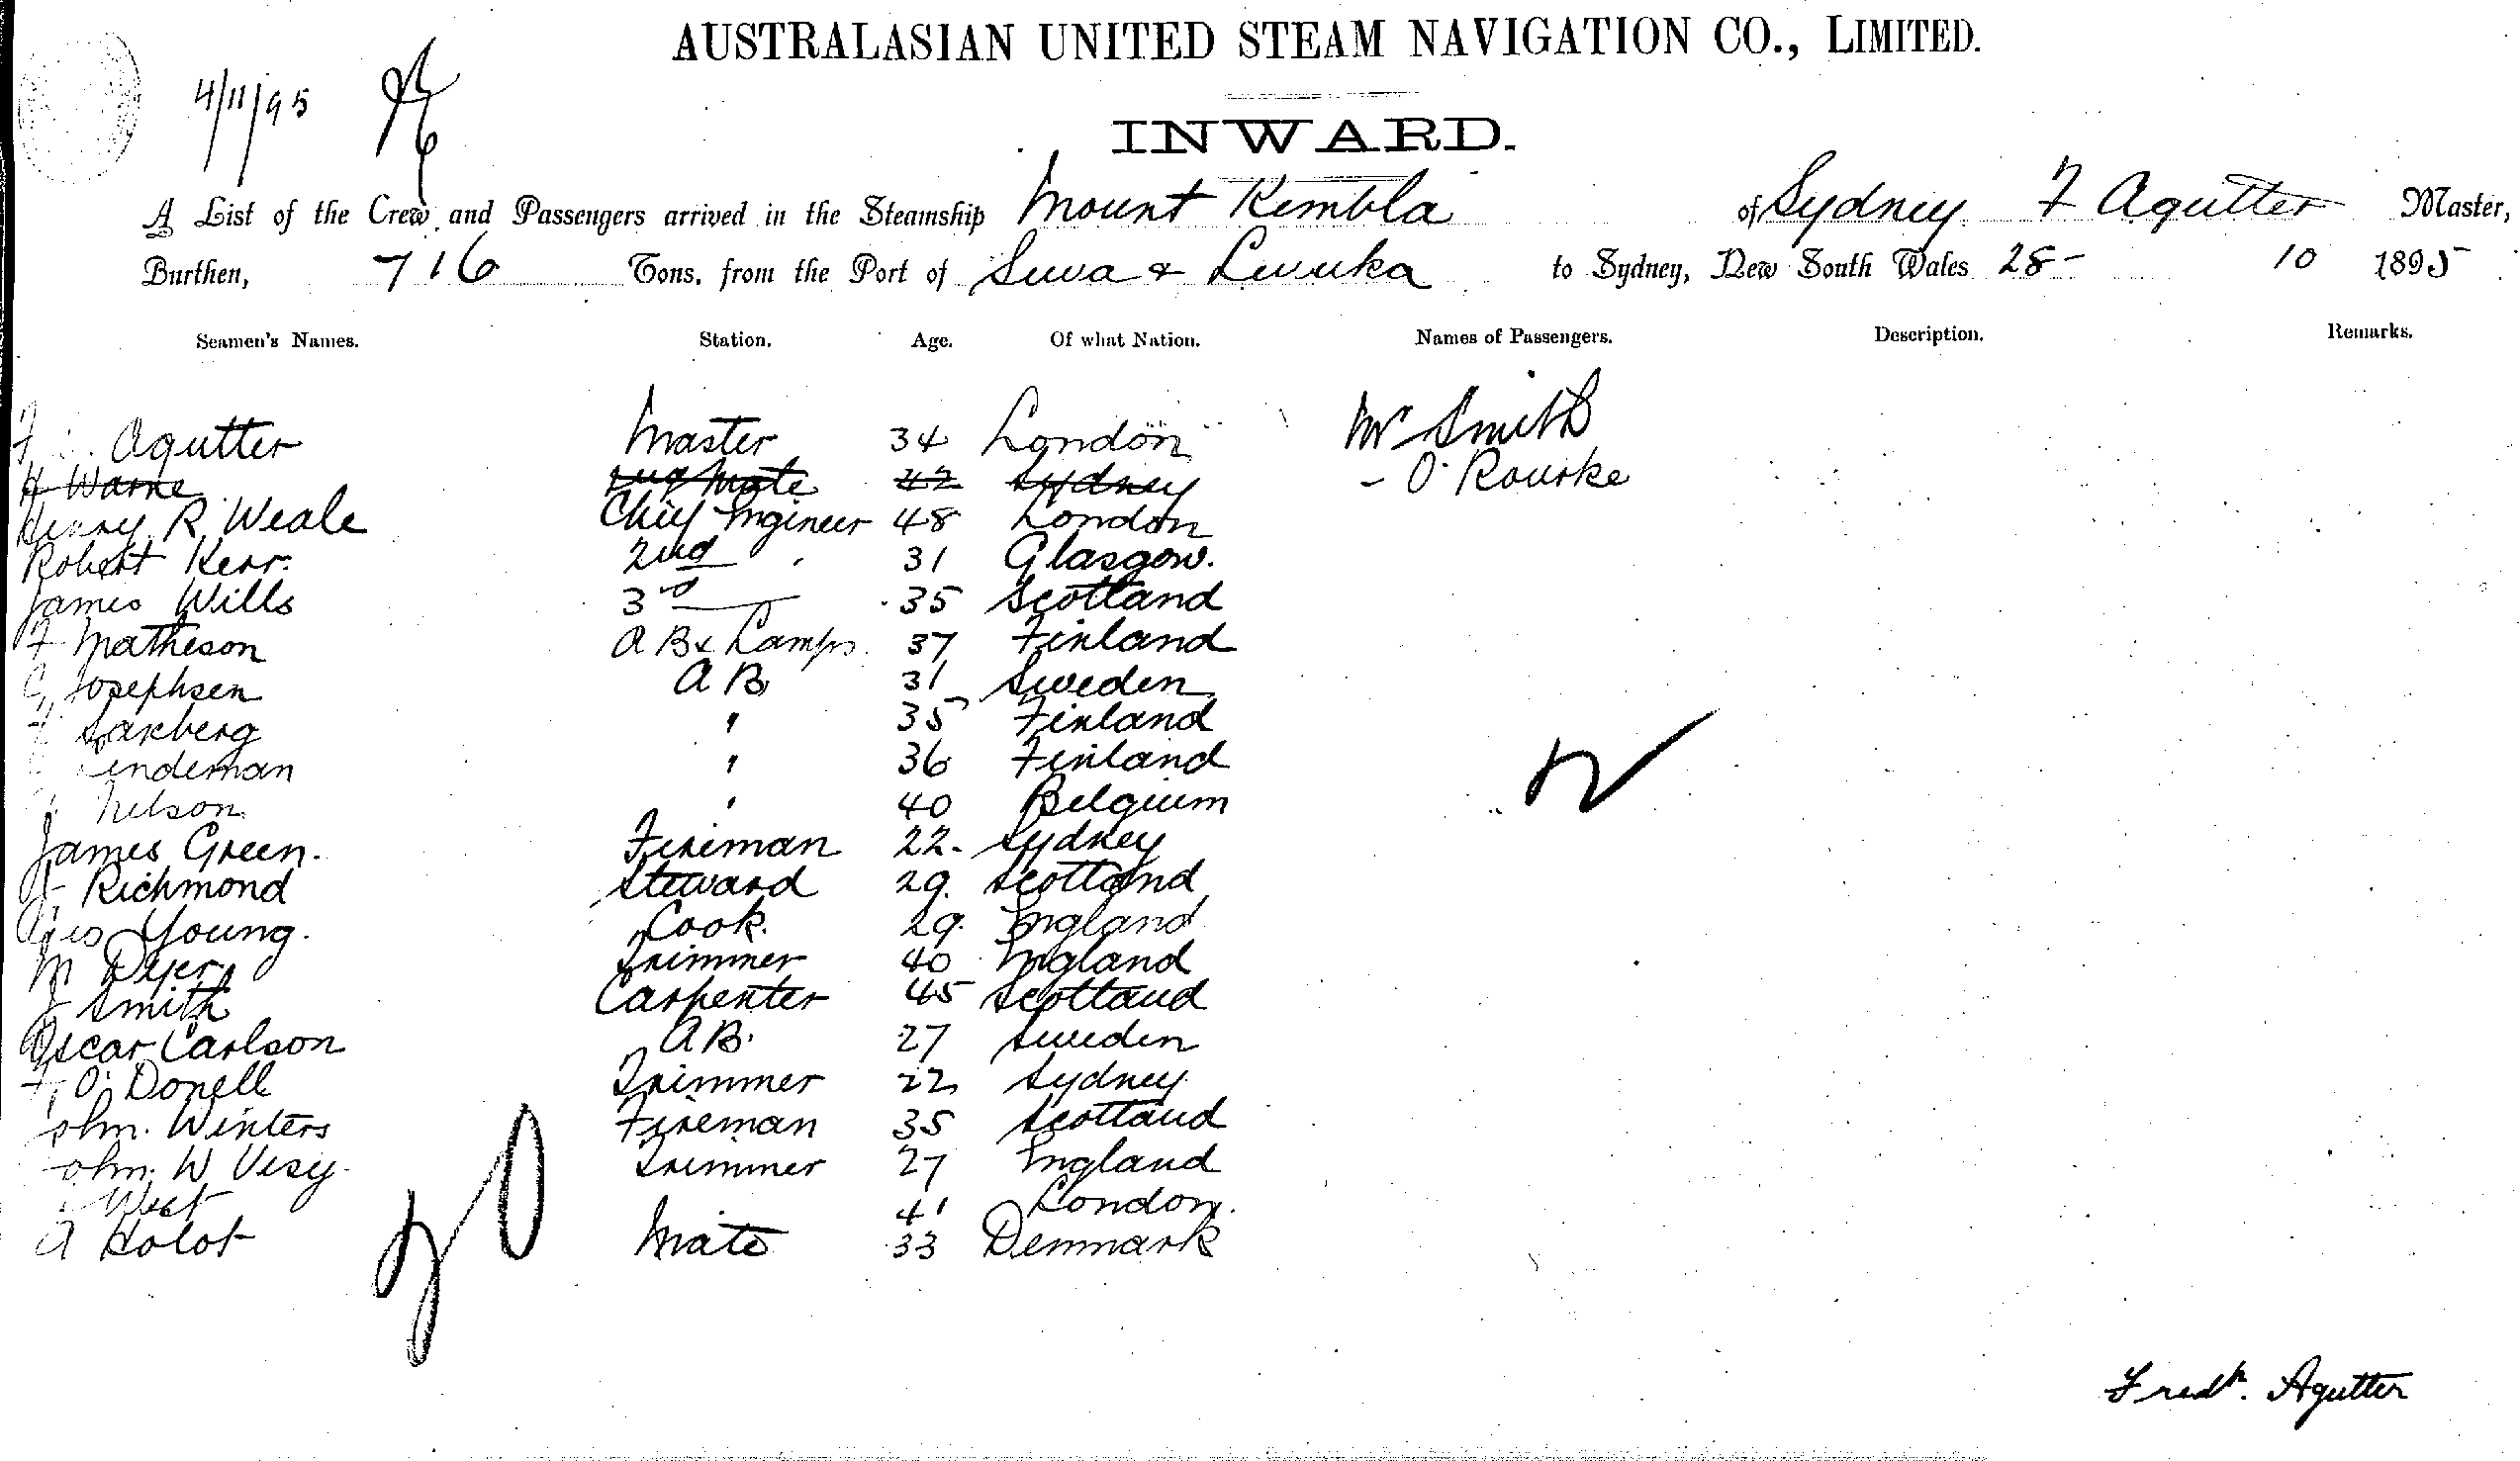 AUSTRALASIAN UNITED STEAM NAVIGATION CO., LIMITED.
4/11/95
INWARD.
A List of the Crew and Passengers arrived in the Steamship Mount Kembla of Sydney F Agutter Master,
Burthen, 716 Tons, from the Port of Suva & Levuka to Sydney, New South Wales 28- 10 1895
Seamen's Names. Station. Age. Of what Nation. Names of Passengers. Description. Remarks.
F Agutter Master 34 London Mr Smith
H Warne 2nd Mate 42 Sydney - O'Rourke
Henry R Weale Chief Engineer 48 London
Robert Kerr. 2nd " 31 Glasgow.
James Wills 3rd 35 Scotland
F Matheson A B & Lamps 37 Finland
Josephsen A B 31 Sweden
" 35 Finland
" 36 Finland
Nelson " 40 Belgium
James Green. Fireman 22. Sydney
Richmond Steward 29. Scotland
Geo Young. Cook. 29. England
M Dyer Trimmer 40 England
J Smith Carpenter 45 Scotland
Oscar Carlson A B. 27 Sweden
O'Donell Trimmer 22 Sydney
John. Winters Fireman 35 Scotland
John. W Visy Trimmer 27 England
West 41 London.
A Holot Mate 33 Denmark
Fredk. Agutter